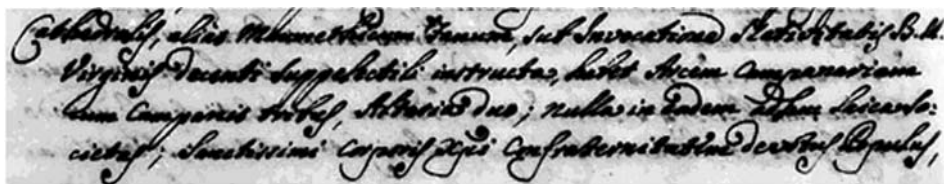 Cathedralis, alias Maumethicum Fanum, sub Invocatione Nativitatis B. M.
Virginis decenti suppellectili instructa, habet Arcem Campanariam
cum Campanis tribus, Altaria duo; nulla in eadem adhuc laica So:
cietas; Sanctissimi Corporis Xpi Confraternitatem devotus Populus,